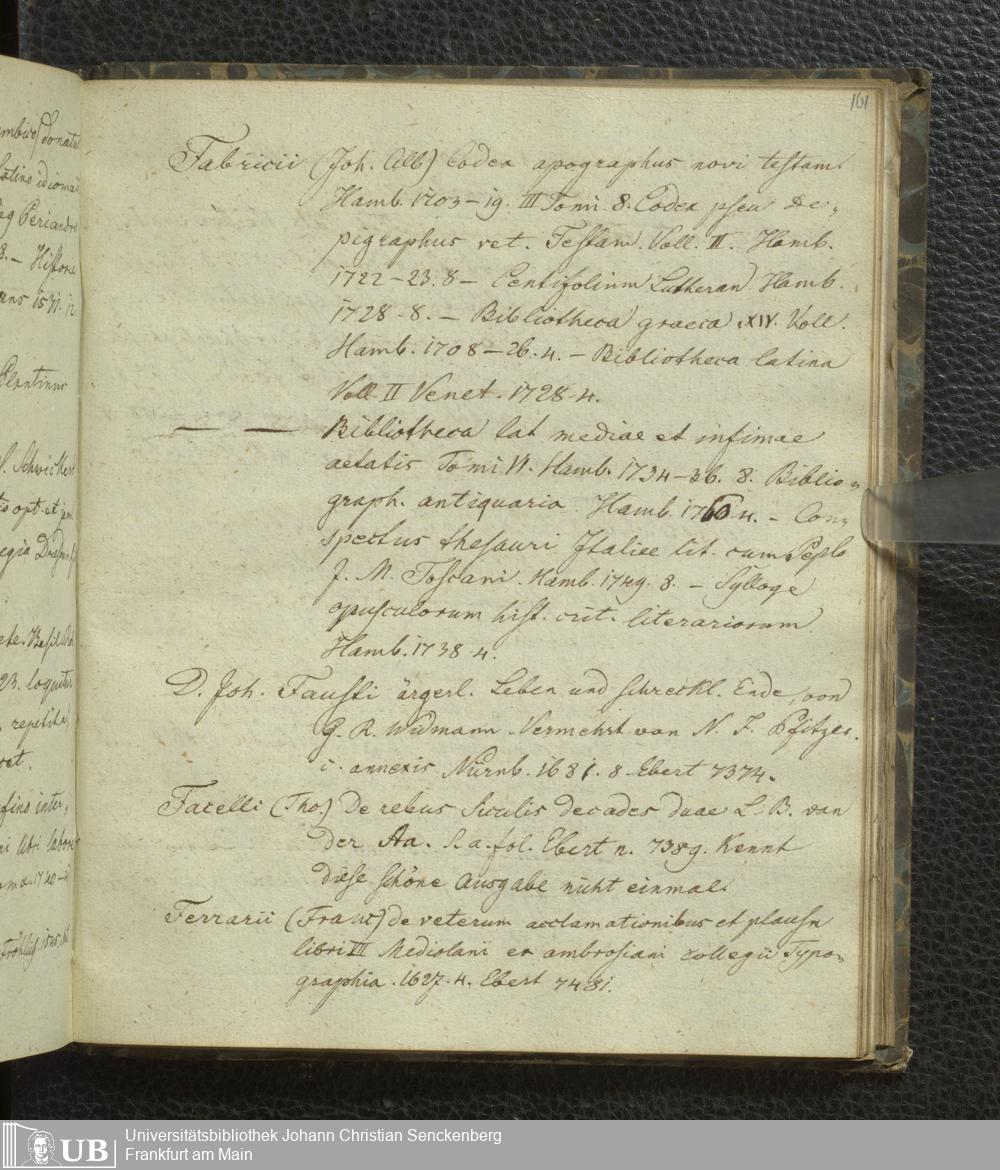 161
Fabricii (Joh. Alb) Codex apographus novi testam.
Hamb. 1703-19. III Tomi. 8. Codex pseu de-,
pigraphus vet. Testam. Voll. II. Hamb.
1722-23. 8 - Centifolium Lutheran Hamb.
1728-8. - Bibliotheca graeca XIV. Voll.
Hamb. 1708-26. 4. - Bibliotheca latina
Voll. II Venet. 1728-4.
— — Bibliotheca lat mediae et infimae
aetatis Tomi VI. Hamb. 1734-36. 8. Biblio-
graph. antiquaria Hamb. 1760 4. - Con-
spectus thesauri Italiee lit. cum Peplo
J. M. Toscani. Hamb. 1749. 8. - Sylloge
opusculorum hist. crit. literariorum
Hamb. 1738 4.
D. Joh. Fausti ärgerl. Leben und schreckl. Ende, von
G. R. Widmann. Vermehrt von N. J. Pfitzer.
c. annexis Nürnb. 1681. 8 Ebert 7374.
Facelli (Tho.) De rebus Siculis decades duae L. B. van
der Aa. s. a. fol. Ebert n. 7389. Kennt
diese schöne Ausgabe nicht einmal.
Ferrarii (Franc) de veterum acclamationibus et plausu
libri III Mediolani ex ambrosiani collegii Typo-
graphia. 1627. 4. Ebert 7481.
mbico) donatu
latino idioma
Periandr
8. - Histori
1531. 12
Plantinus
l. Schwickert
opt. et
egia
ete. Basil
23. loquitur
repetita
ret.
fino inter,
ni libri labore
1740
1545.
UB
Universitätsbibliothek Johann Christian Senckenberg
Frankfurt am Main